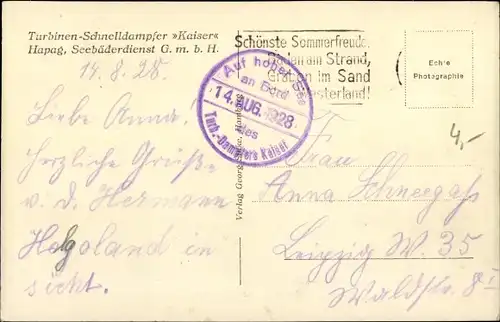 Turbinen-Schnelldampfer »Kaiser«
Hapag, Seebäderdienst G. m. b. H.
14. 8. 28.
Liebe Anna!
Herzliche Grüße
v. d. Hermann
Helgoland in
sicht.
Schönste Sommerfreude.
Baden am Strand,
Graben im Sand
Westerland!
Auf hoher See
an Bord
14. AUG. 1928
des
Turb.-Dampfers Kaiser
Verlag Georg
Hamburg
Echte
Photographie
4,-
Frau
Anna Schneegaß
Leipzig W. 35
Waldstr. 8 I